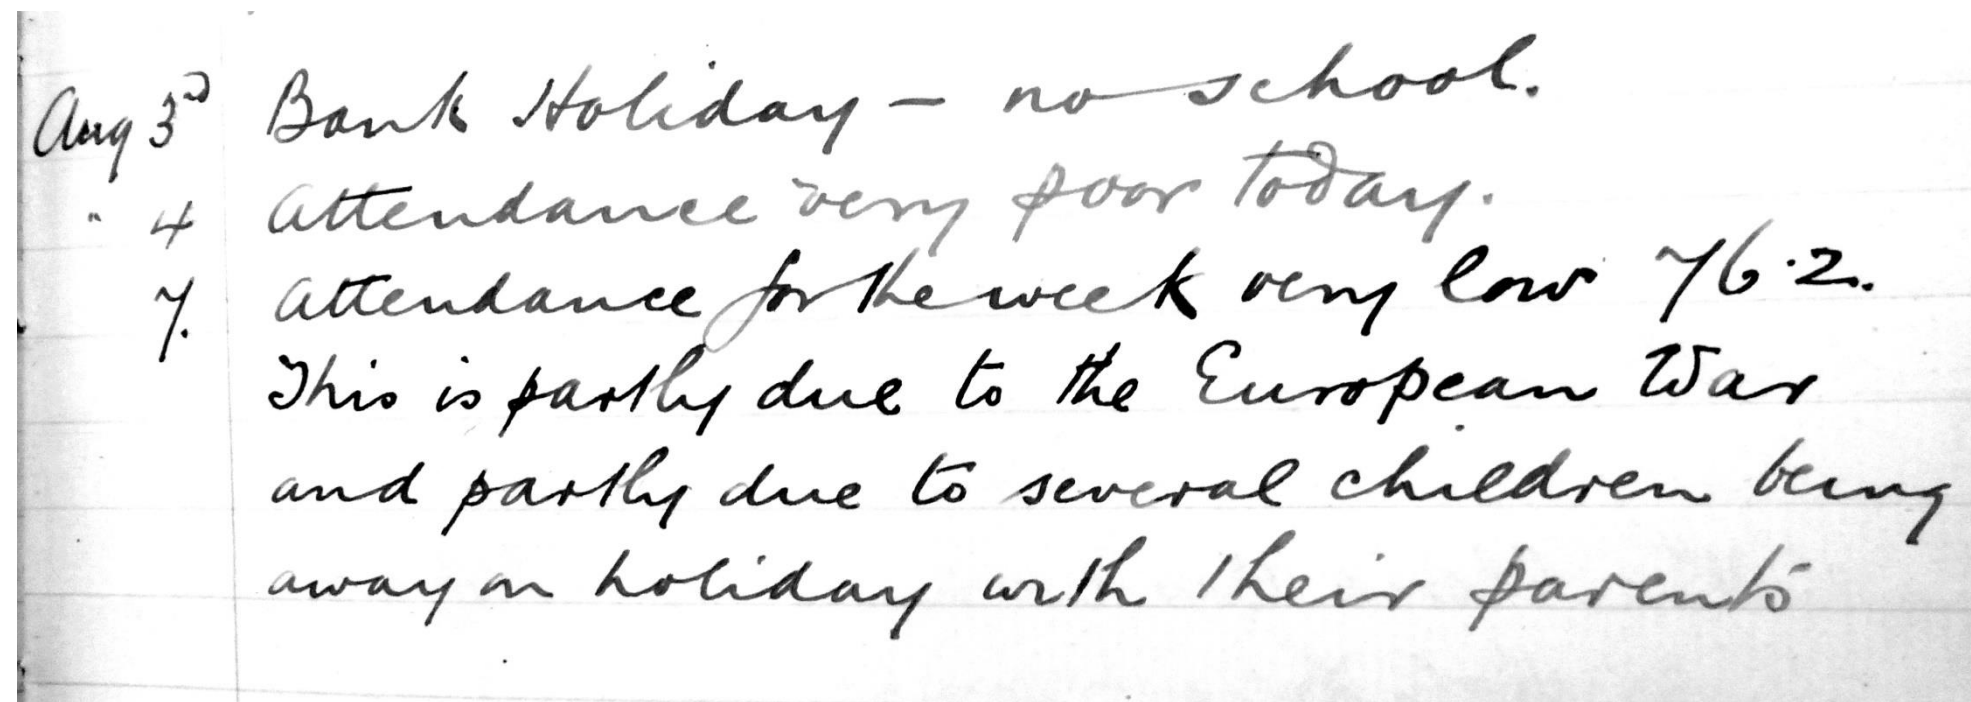 Aug 3rd Bank Holiday – no school.
" 4 Attendance very poor today.
7. Attendance for the week very low 76.2.
This is partly due to the European War
and partly due to several children being
away on holiday with their parents